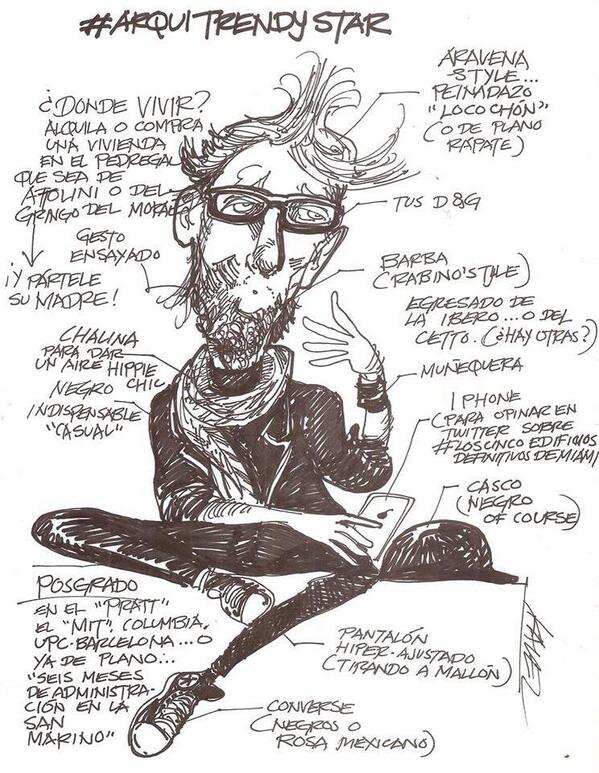 #ARQUITRENDYSTAR
¿DONDE VIVIR?
ALQUILA O COMPRA
UNA VIVIENDA
EN EL PEDREGAL
QUE SEA DE
ATTOLINI O DEL
GRINGO DEL MORAL
¡Y PÁRTELE
SU MADRE!
ARAVENA
STYLE...
PEINADAZO
"LOCOCHÓN"
(O DE PLANO
RÁPATE)
TUS D&G
GESTO
ENSAYADO
BARBA
(RABINO'STYLE)
EGRESADO DE
LA IBERO... O DEL
CETTO. (¿HAY OTRAS?)
CHALINA
PARA DAR
UN AIRE HIPPIE
CHIC
MUÑEQUERA
NEGRO
INDISPENSABLE
"CASUAL"
I PHONE
(PARA OPINAR EN
TWITTER SOBRE
#LOSCINCO EDIFICIOS
DEFINITIVOS DE MIAMI
CASCO
(NEGRO
OF COURSE)
POSGRADO
EN EL "PRATT"
EL "MIT", COLUMBIA,
UPC-BARCELONA... O
YA DE PLANO...
"SEIS MESES
DE ADMINISTRA-
CIÓN EN LA
SAN
MARINO"
PANTALÓN
HIPER-AJUSTADO
(TIRANDO A MALLÓN)
CONVERSE
(NEGROS O
ROSA MEXICANO)